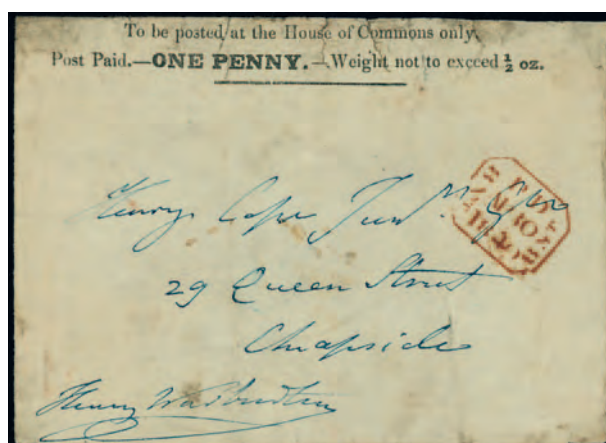 To be posted at the House of Commons only.
Post Paid.—ONE PENNY.—Weight not to exceed ½ oz.
Henry Cope Junr.
29 Queen Street
Cheapside
Henry Warburton